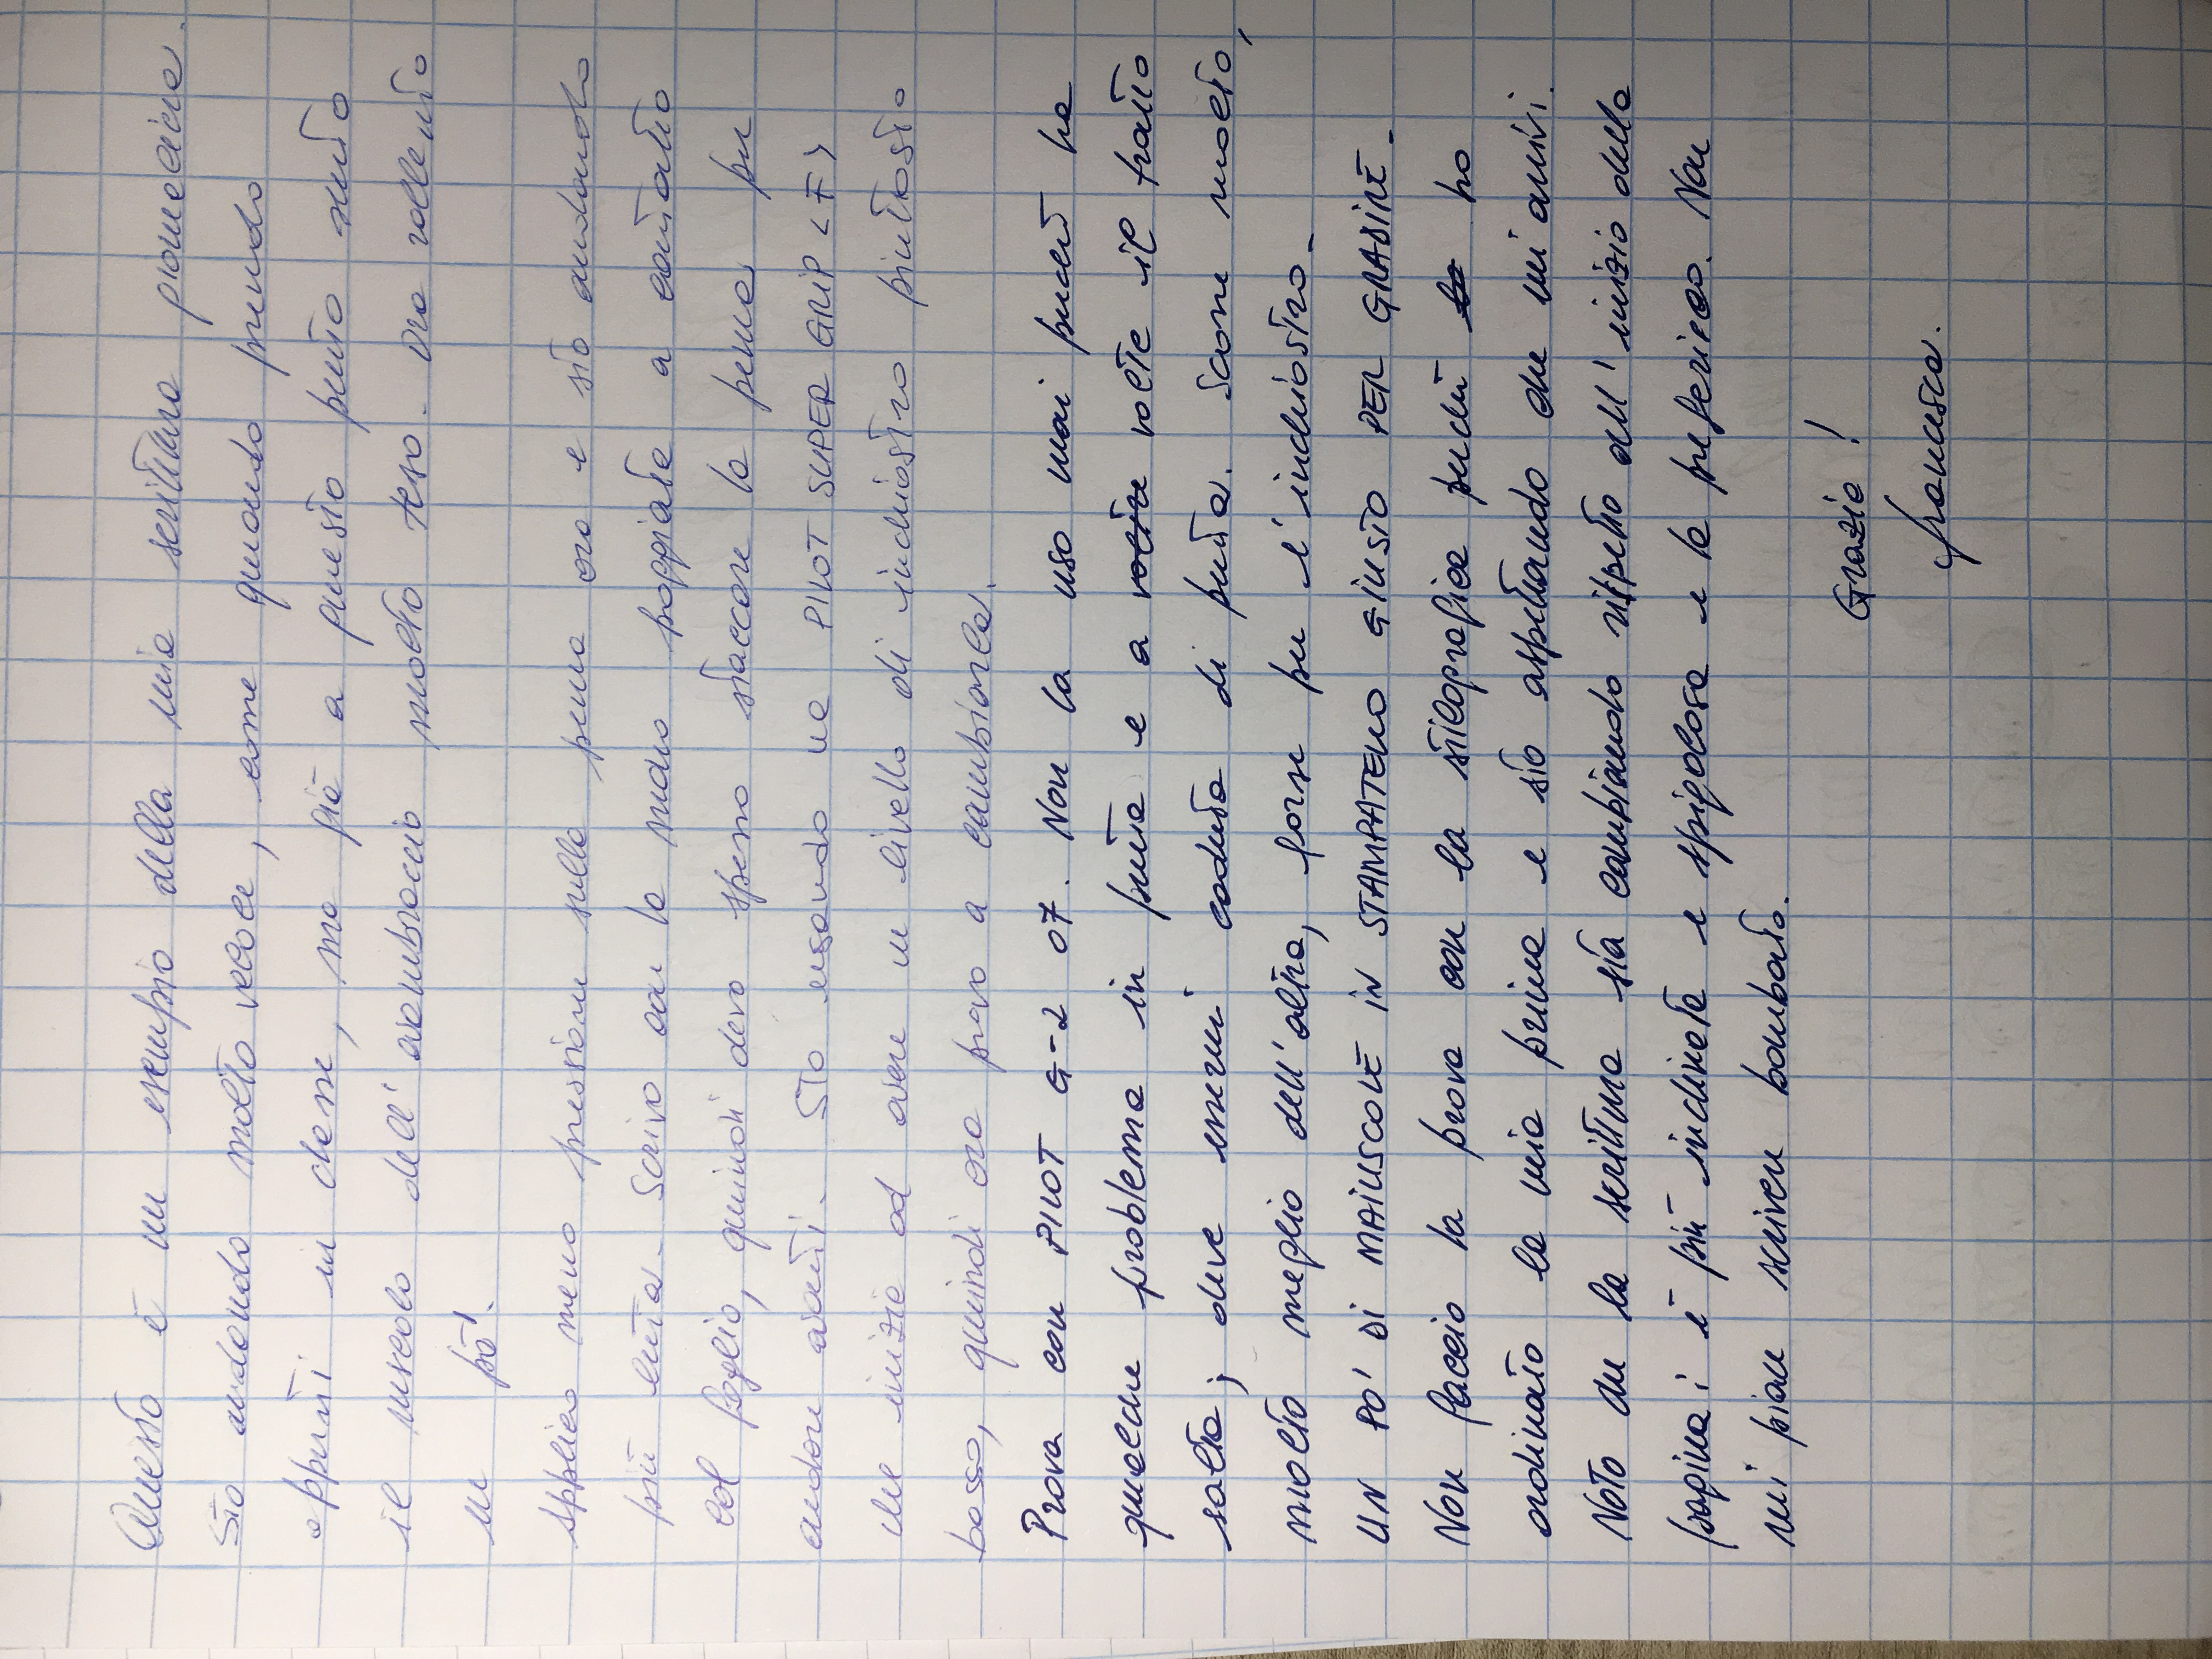 Questo è un esempio della mia scrittura giornaliera.
Sto andando molto veloce, come quando prendo
appunti in classe, ma già a questo punto sento
il muscolo dell'avambraccio molto teso. Ora rallento
un pò!
Applico meno pressione sulla penna ora e sto andando
più lenta. Scrivo con la mano poggiata a contatto
col foglio, quindi devo spesso staccare la penna per
andare avanti. Sto usando una PILOT SUPER GRIP <F>
che inizia ad avere un livello di inchiostro piuttosto
basso, quindi ora provo a cambiarla.
Prova con PILOT G-2 07. Non la uso mai perché ha
qualche problema in punta e a voltre volte il tratto
salta; deve essermi caduta di punta. Scorre molto,
molto meglio dell'altra, forse per l'inchiostro.
UN PO' DI MAIUSCOLE IN STAMPATELLO GIUSTO PER GRADIRE.
Non faccio la prova con la stilografica perché ho ho
ordinato la mia prima e sto aspettando che mi arrivi.
Noto che la scrittura sta cambiando rispetto all'inizio della
pagina: è più inclinata e spigolosa e la preferisco. Non
mi piace scrivere bombato.
Grazie!
Francesca.